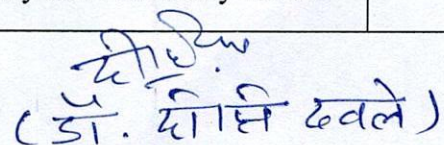 (डॉ. दीप्ति ढवले)